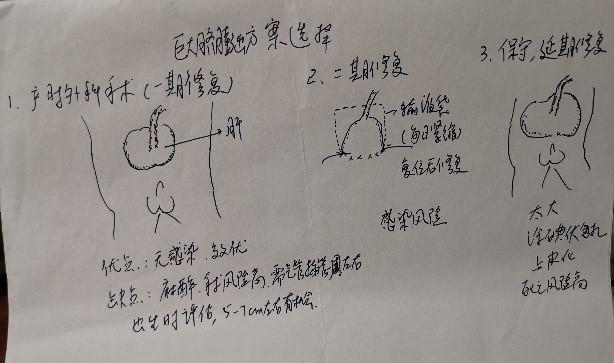 巨大脐膨出方案选择
1. 产时外科手术(一期修复)
肝
优点:无感染,效优
缺点:麻醉、手术风险高,需气管插管 周左右
出生时评估,5-7cm左右有机会.
2. 二期修复
输液袋
(每日紧缩)
复位后修复
感染风险
3. 保守,延期修复
太大
涂碘伏
上皮化
死亡风险高